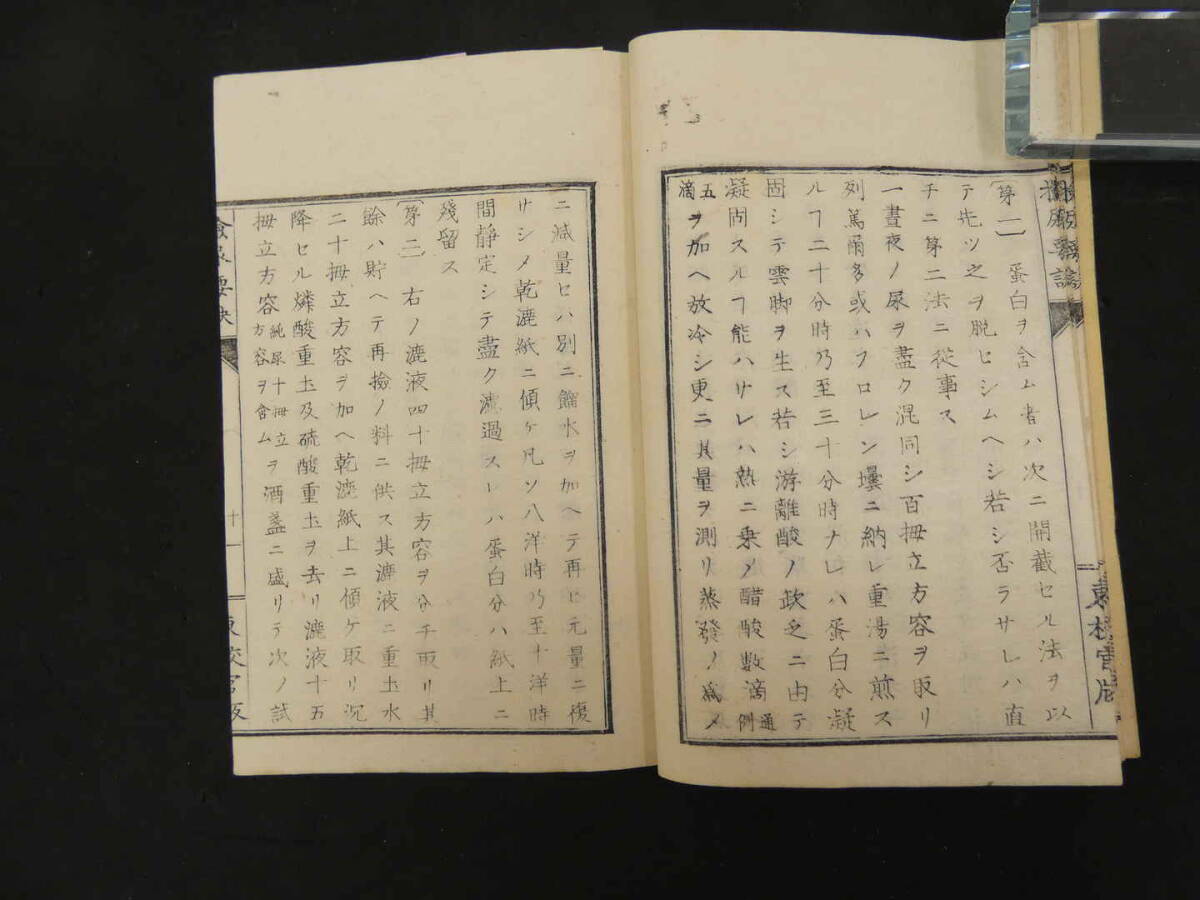 〔第一〕蛋白ヲ含ム者ハ次ニ開截セル法ヲ以
テ先ツ之ヲ脱ヒシムヘシ若シ否ラサレハ直
チニ第二法ニ從事ス
一晝夜ノ尿ヲ盡ク混同シ百拇立方容ヲ取リ
列篤爾多或ハフロレン壜ニ納レ重湯ニ煎ス
ルヿ二十分時乃至三十分時ナレハ蛋白分凝
固シテ雲脚ヲ生ス若シ游離酸ノ欧乏ニ由テ
凝固スルヿ能ハサレハ熱ニ乗メ醋酸數滴通例
五滴ヲ加ヘ放冷シ更ニ其量ヲ測リ蒸發ノ爲メ
ニ減量ヒハ別ニ餾水ヲ加ヘテ再ヒ元量ニ複
サシメ乾漉紙ニ傾ケ凡ソ八洋時乃至十洋時
間静定シテ盡ク濾過スレハ蛋白分ハ紙上ニ
殘留ス
〔第二〕右ノ漉液四十拇立方容ヲ分チ取リ其
餘ハ貯ヘテ再撿ノ料ニ供ス其漉液ニ重土水
二十拇立方容ヲ加ヘ乾漉紙上ニ傾ケ取リ沉
降セル燐酸重土及硫酸重土ヲ去リ漉液十五
拇立方容純尿十拇立方容ヲ含ムヲ酒盞ニ盛リテ次ノ試
十一